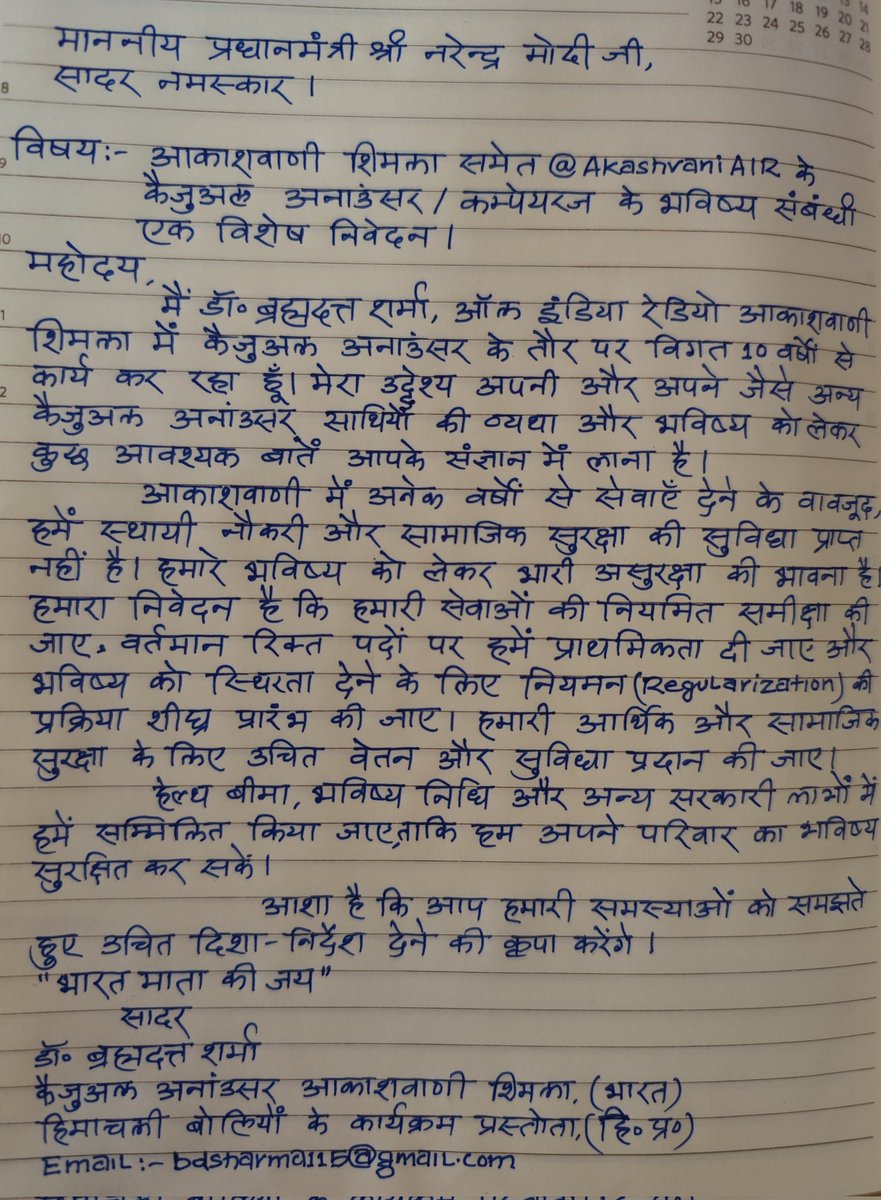 14
15 16 17 18 19 20 21
22 23 24 25 26 27 28
29 30
माननीय प्रधानमंत्री श्री नरेन्द्र मोदी जी,
8
सादर नमस्कार ।
9
विषय:- आकाशवाणी शिमला समेत @AkashvaniAIR के
कैजुअल अनाउंसर / कम्पेयरज के भविष्य संबंधी
10
एक विशेष निवेदन ।
महोदय,
मैं डॉ॰ ब्रह्मदत्त शर्मा, ऑल इंडिया रेडियो आकाशवाणी
1
शिमला में कैजुअल अनाउंसर के तौर पर विगत 10 वर्षों से
कार्य कर रहा हूँ। मेरा उद्देश्य अपनी और अपने जैसे अन्य
2
कैजुअल अनांउसर साथियों की व्यथा और भविष्य को लेकर
कुछ आवश्यक बातें आपके संज्ञान में लाना है।
आकाशवाणी में अनेक वर्षों से सेवाएँ देने के वावजूद,
हमें स्थायी नौकरी और सामाजिक सुरक्षा की सुविधा प्राप्त
नहीं है। हमारे भविष्य को लेकर भारी असुरक्षा की भावना है।
हमारा निवेदन है कि हमारी सेवाओं की नियमित समीक्षा की
जाए, वर्तमान रिक्त पदों पर हमें प्राथमिकता दी जाए और
भविष्य को स्थिरता देने के लिए नियमन (Regularization) की
प्रक्रिया शीघ्र प्रारंभ की जाए। हमारी आर्थिक और सामाजिक
सुरक्षा के लिए उचित वेतन और सुविधा प्रदान की जाए।
हेल्थ बीमा, भविष्य निधि और अन्य सरकारी लाभों में
हमें सम्मिलित किया जाए,ताकि हम अपने परिवार का भविष्य
सुरक्षित कर सकें।
आशा है कि आप हमारी समस्याओं को समझते
हुए उचित दिशा-निर्देश देने की कृपा करेंगे ।
"भारत माता की जय"
सादर
डॉ॰ ब्रह्मदत्त शर्मा
कैजुअल अनांउसर आकाशवाणी शिमला, (भारत)
हिमाचली बोलियों के कार्यक्रम प्रस्तोता,(हि॰ प्र॰)
Email:- bdsharma115@gmail.com